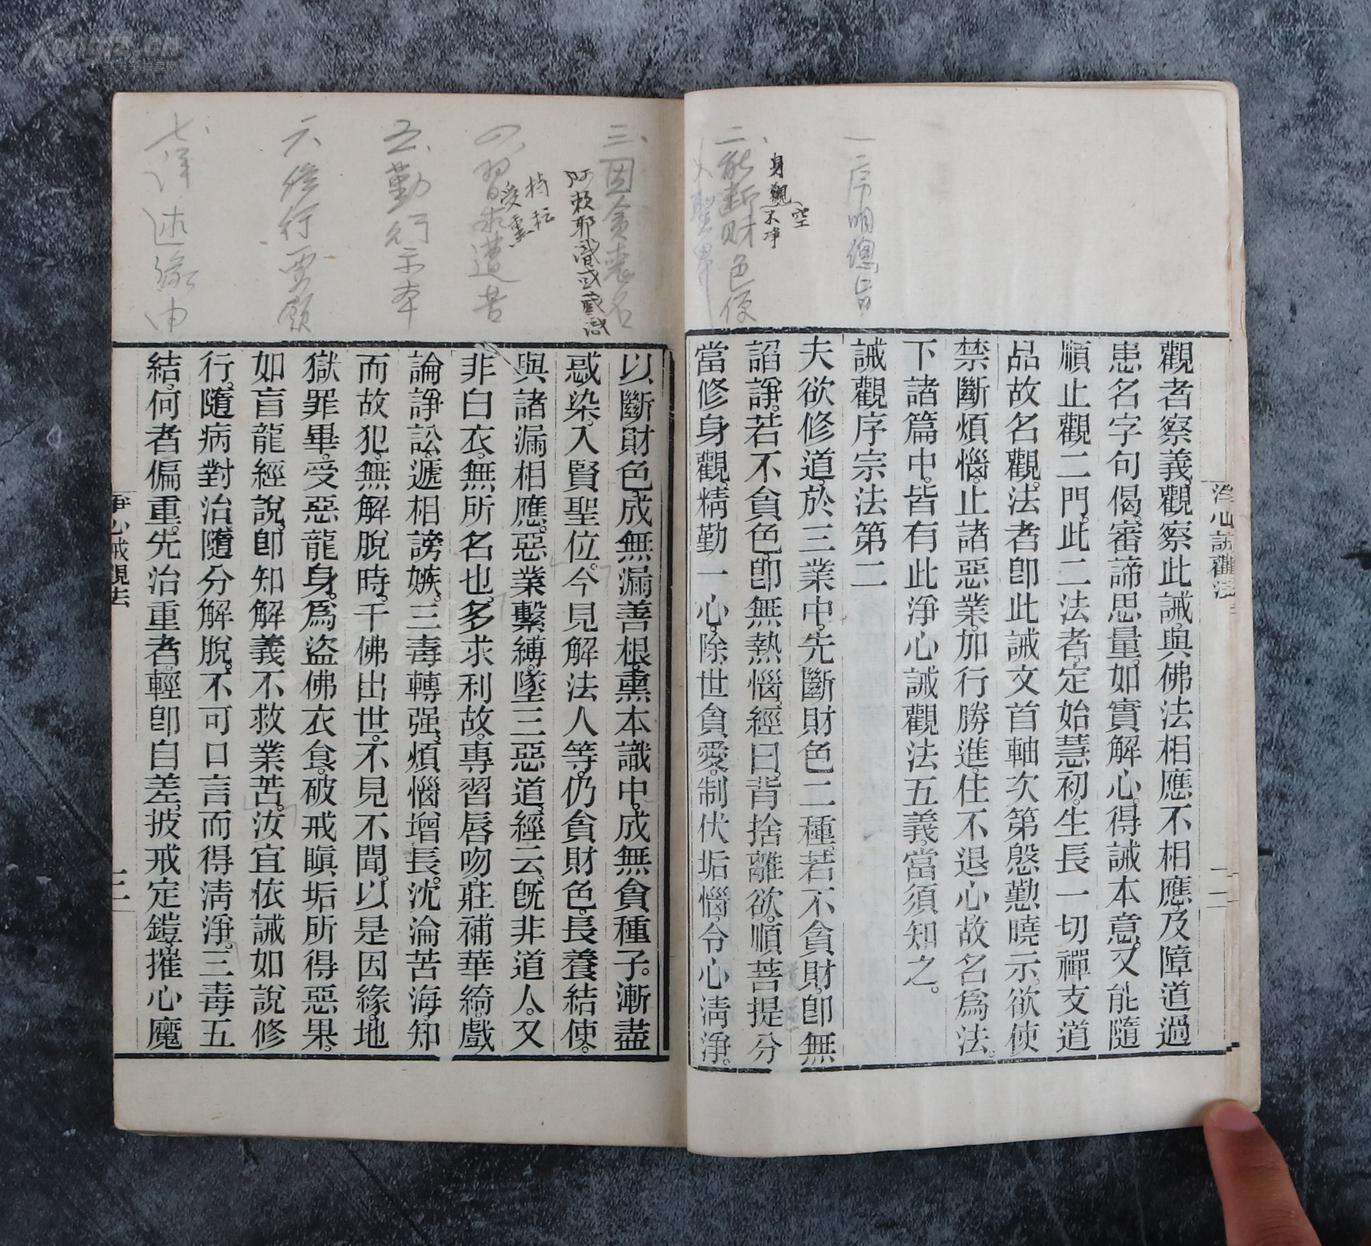 一、序明總旨
身觀不淨
空
二、能斷財色便
入聖界
觀者察義。觀察此誡。與佛法相應不相應。及障道過
患名字句偈。審諦思量。如實解心。得誡本意。又能隨
順止觀二門。此二法者。定始慧初。生長一切禪支道
品。故名觀。法者。卽此誡文首軸次第慇懃曉示。欲使
禁斷煩惱。止諸惡業。加行勝進。住不退心。故名爲法。
下諸篇中。皆有此淨心誡觀法五義。當須知之。
誡觀序宗法第二
夫欲修道。於三業中。先斷財色二種。若不貪財。卽無
諂諍。若不貪色。卽無熱惱。經曰。背捨離欲。順菩提分。
當修身觀。精勤一心。除世貪愛。制伏垢惱。令心淸淨。
淨心誡觀法
二
三、因貪喪名
四、習求遭苦
五、勤行示本
六、依行要領
七、詳述緣由
以斷財色。成無漏善根。熏本識中。成無貪種子。漸盡
惑染。入賢聖位。今見解法人等。仍貪財色。長養結使。
與諸漏相應。惡業繫縛。墜三惡道。經云。旣非道人。又
非白衣。無所名也。多求利故。專習唇吻。莊補華綺。戲
論諍訟。遞相謗嫉。三毒轉强。煩惱增長。沈淪苦海。知
而故犯。無解脫時。千佛出世。不見不聞。以是因緣。地
獄罪畢。受惡龍身。爲盜佛衣食。破戒瞋垢。所得惡果。
如盲龍經說。卽知解義不救業苦。汝宜依誡。如說修
行。隨病對治。隨分解脫。不可口言而得淸淨。三毒五
結。何者偏重。先治重者。輕卽自差。披戒定鎧。摧心魔
淨心誡觀法
三